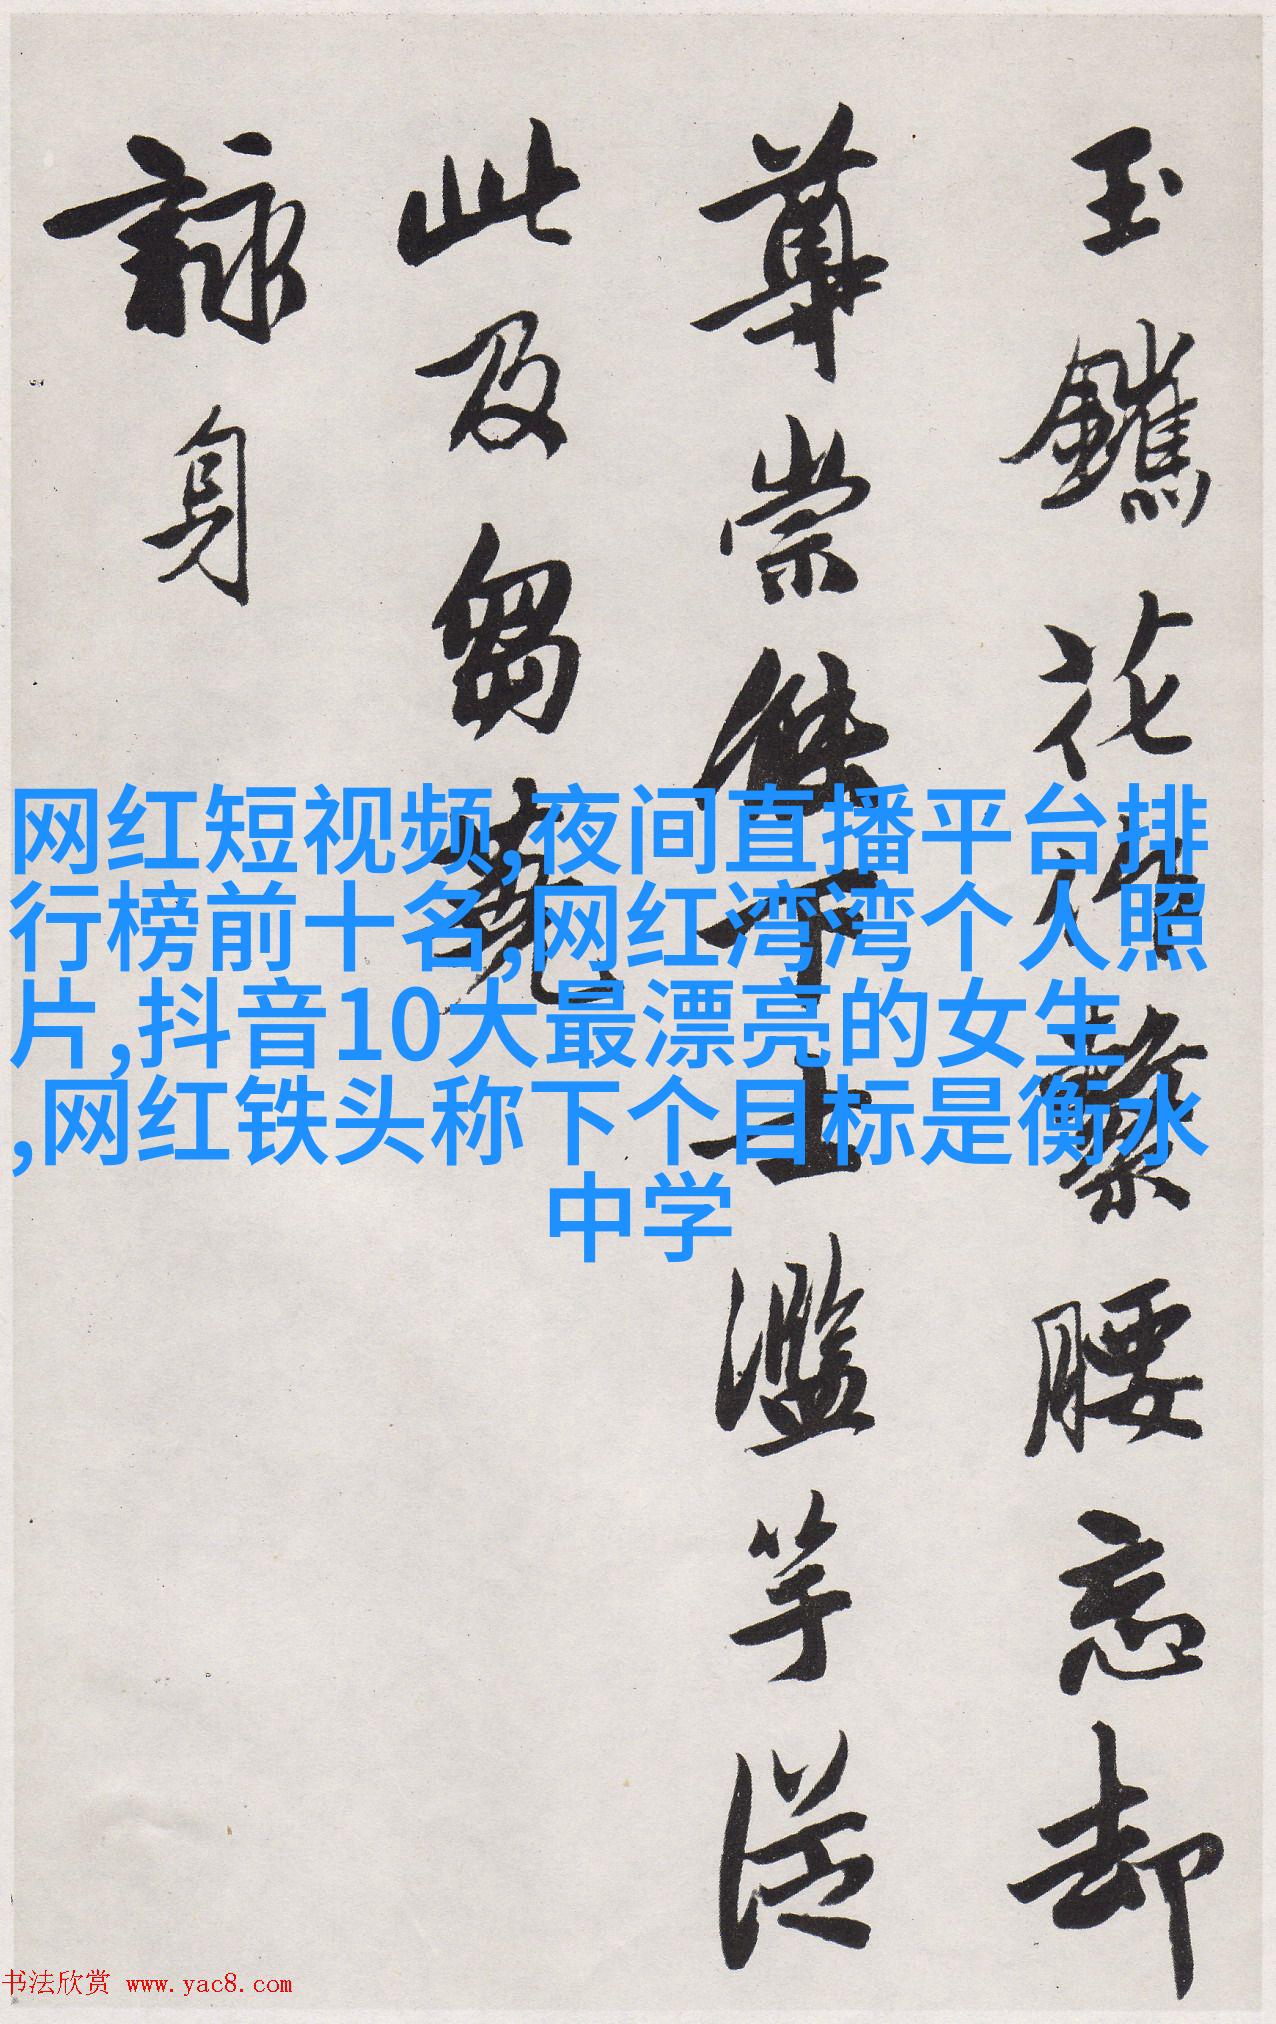 玉花繫腰忘却
崇下士濫竽從
此及芻蕘
詠身
网红短视频,夜间直播平台排
行榜前十名,网红湾湾个人照
片,抖音10大最漂亮的女生
,网红铁头称下个目标是衡水
中学
书法欣赏 www.yac8.com